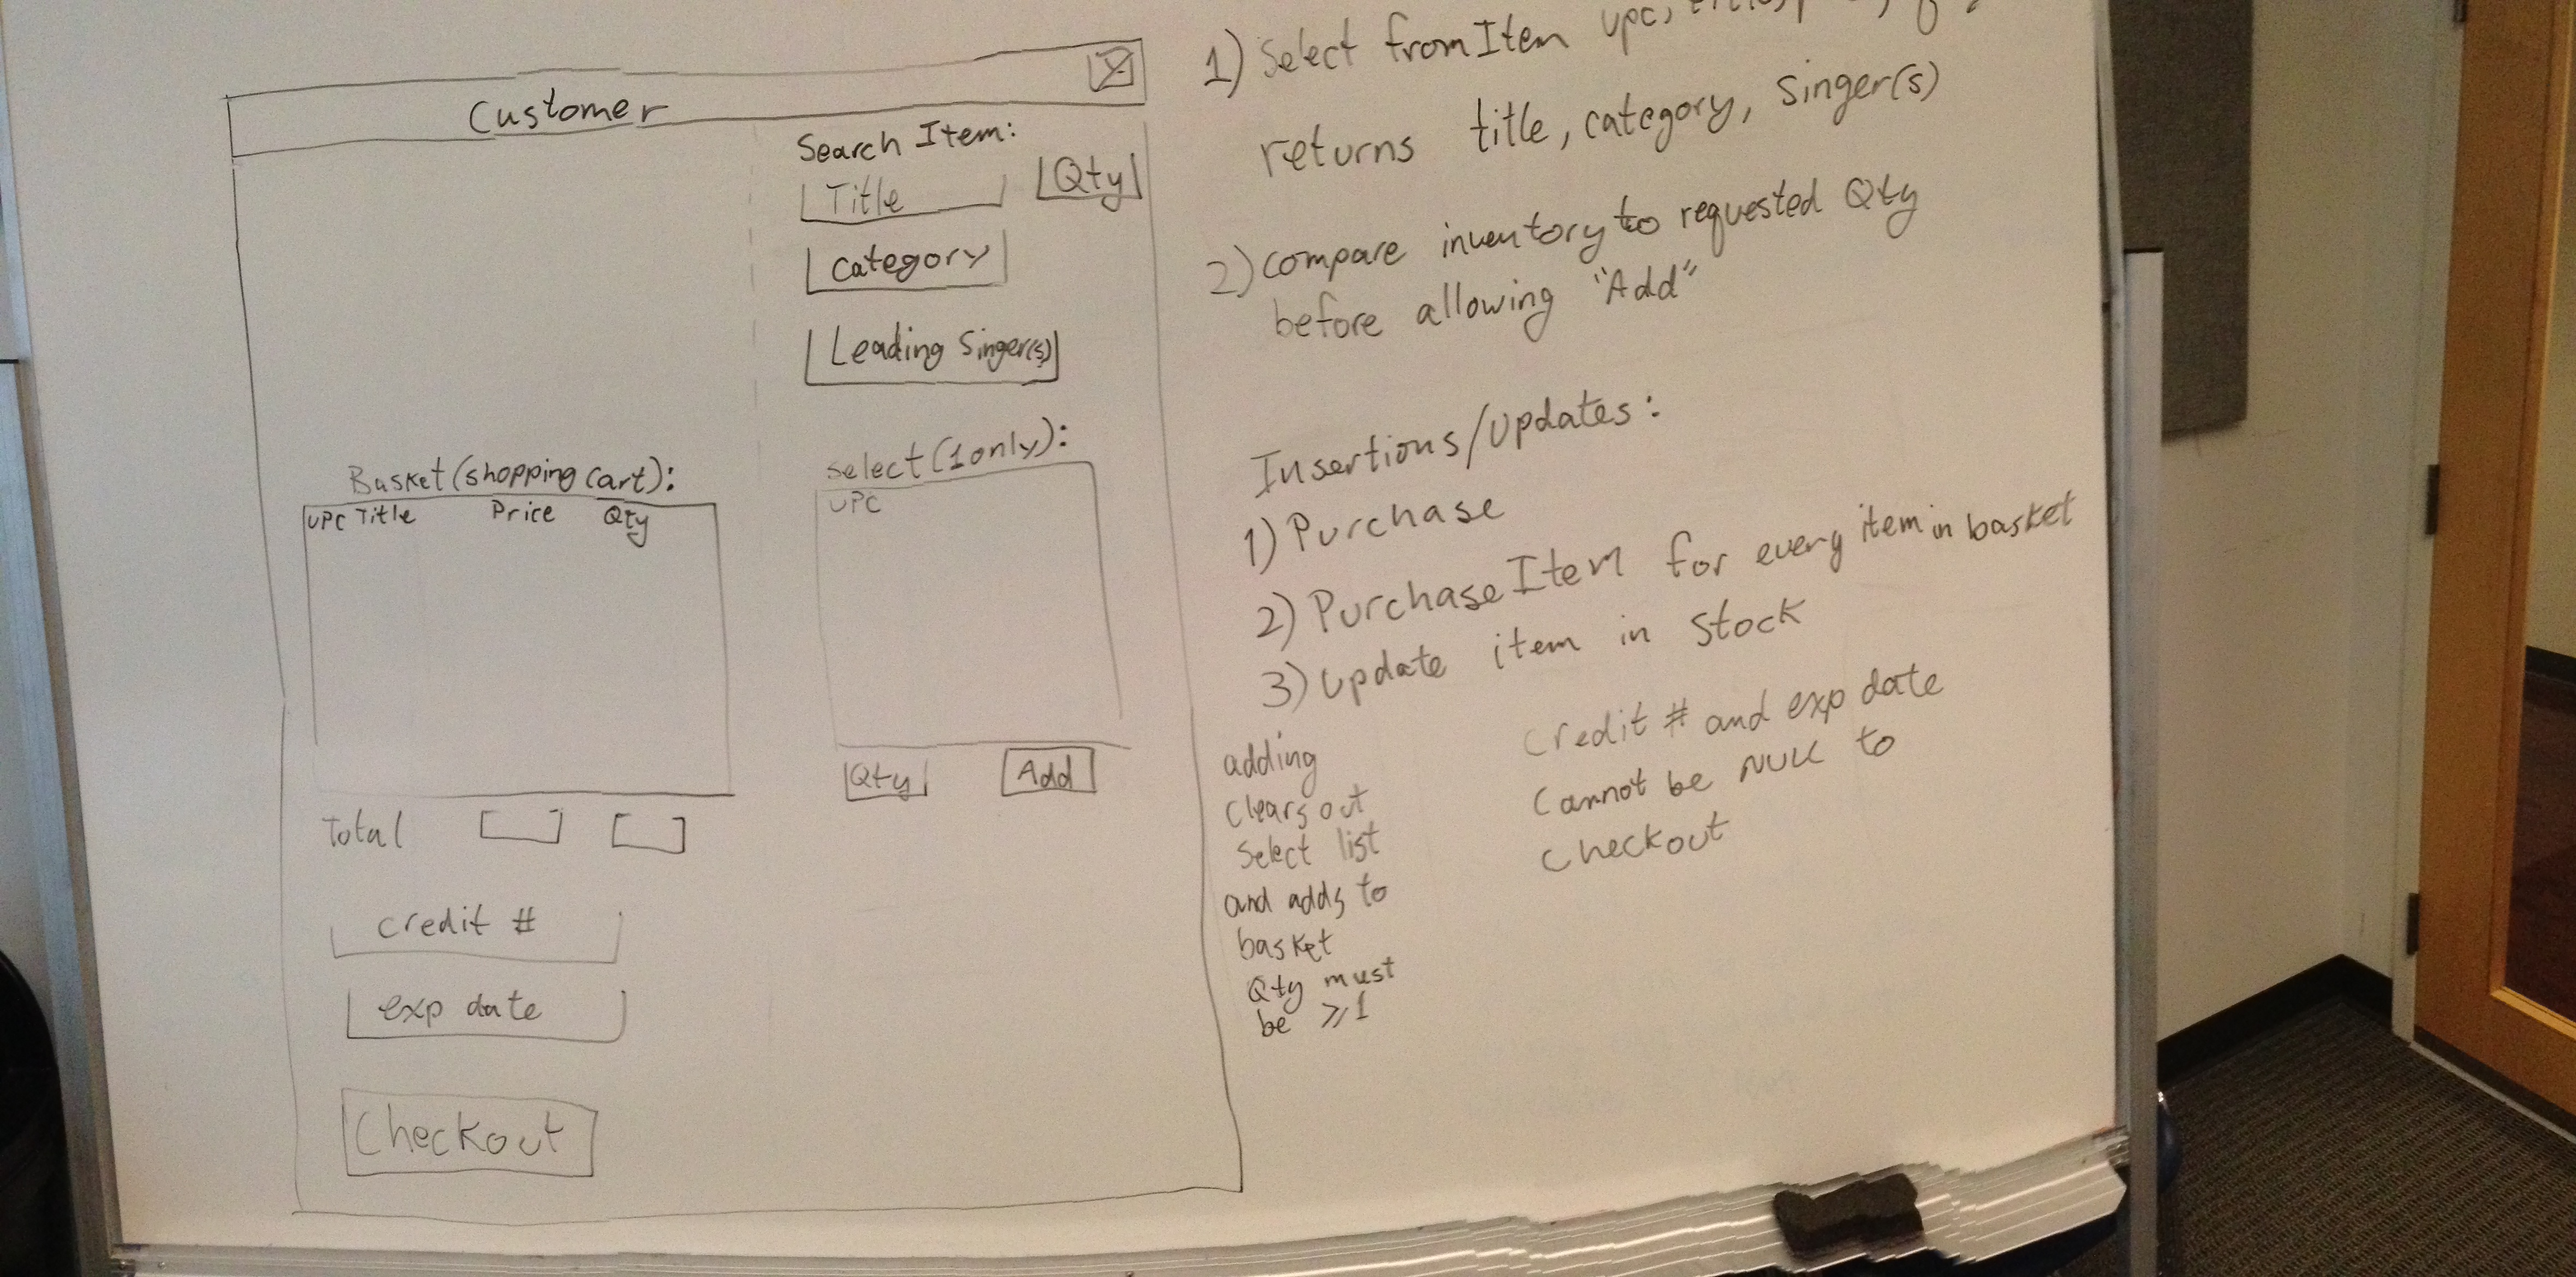 Customer
Search Item:
Title
Qty
Category
Leading Singer(s)
Basket (shopping Cart):
UPC Title Price Qty
Select (1 only):
UPC
Qty
Add
Total
Credit #
exp date
Checkout
1) Select from Item upc,
returns title, category, Singer(s)
2) compare inventory to requested Qty
before allowing "Add"
Insertions/Updates:
1) Purchase
2) PurchaseItem for every item in basket
3) Update item in stock
adding
clears out
Select list
and adds to
basket
Qty must
be ≥1
Credit # and exp date
Cannot be NULL to
checkout